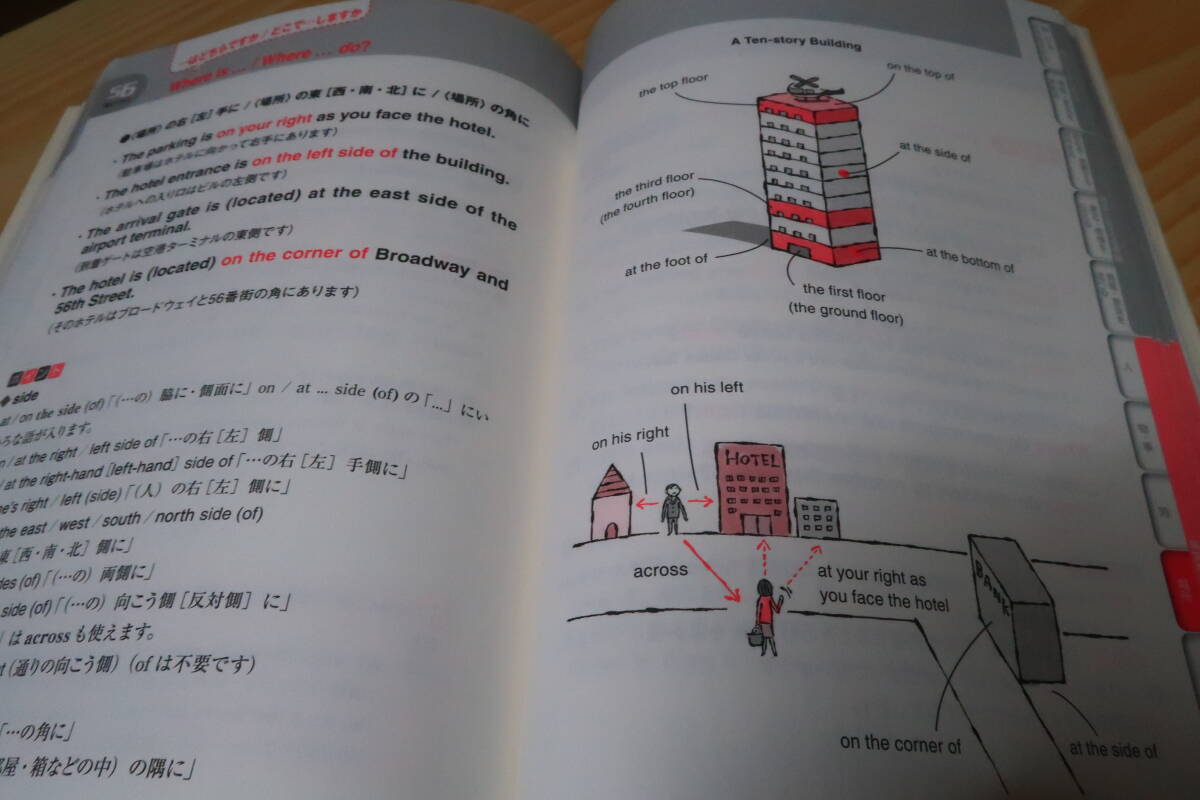 …はどちらですか / どこで…しますか
Where is ... / Where ... do?
56
●〈場所〉の右［左］手に /〈場所〉の東［西・南・北］に /〈場所〉の角に
・The parking is on your right as you face the hotel.
（駐車場はホテルに向かって右手にあります）
・The hotel entrance is on the left side of the building.
（ホテルへの入り口はビルの左側です）
・The arrival gate is (located) at the east side of the
airport terminal.
（到着ゲートは空港ターミナルの東側です）
・The hotel is (located) on the corner of Broadway and
56th Street.
（そのホテルはブロードウェイと56番街の角にあります）
ポイント
◆side
at / on the side (of)「（…の）脇に・側面に」on / at ... side (of) の「...」にい
ろな語が入ります。
/ at the right / left side of「…の右［左］側」
/ at the right-hand [left-hand] side of「…の右［左］手側に」
's right / left (side)「（人）の右［左］側に」
the east / west / south / north side (of)
東［西・南・北］側に」
des (of)「（…の）両側に」
side (of)「（…の）向こう側［反対側］に」
はacrossも使えます。
（通りの向こう側）（ofは不要です）
「…の角に」
屋・箱などの中）の隅に」
A Ten-story Building
the top floor
on the top of
at the side of
the third floor
(the fourth floor)
at the foot of
at the bottom of
the first floor
(the ground floor)
on his left
on his right
HOTEL
across
at your right as
you face the hotel
BANK
on the corner of
at the side of
人
物事
時